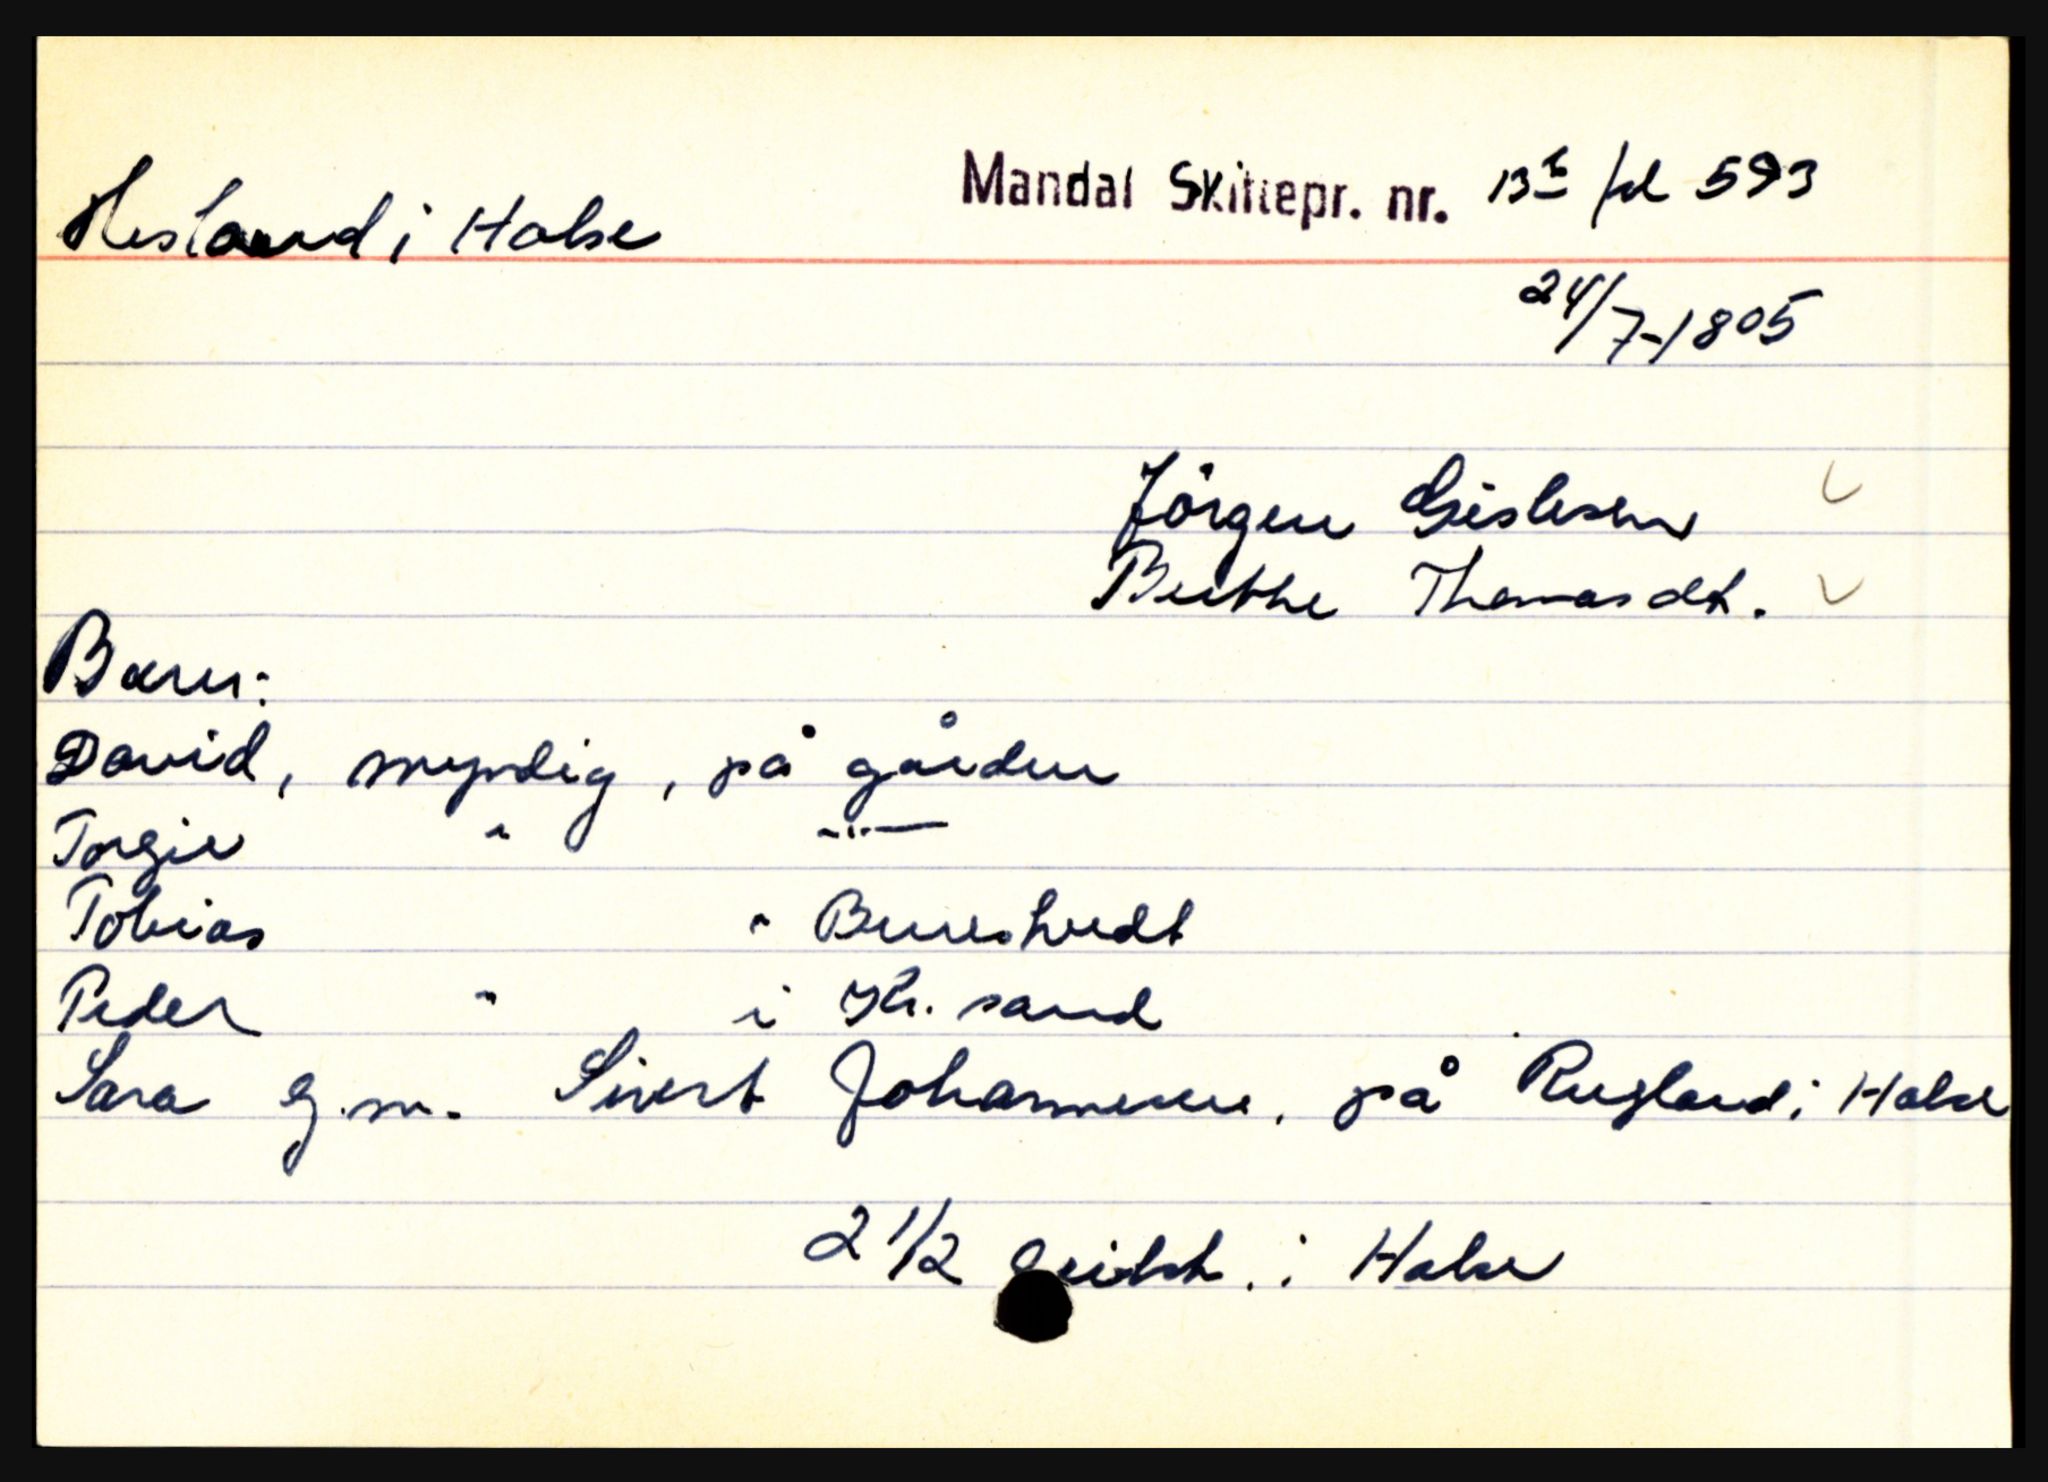 Hesland i Halse
Mandal Skiftepr. nr. 13b fol 593
24/7-1805
Jörgen Gislesen
Berthe Thomasdt.
Barn:
David, myndig, på gården
Torgie " -"-
Tobias " Bureshvedt
Peder " i Kr. sand
Sara g.m. Sivert Johannesen, på Rugland i Halse
2 1/2 i Halse